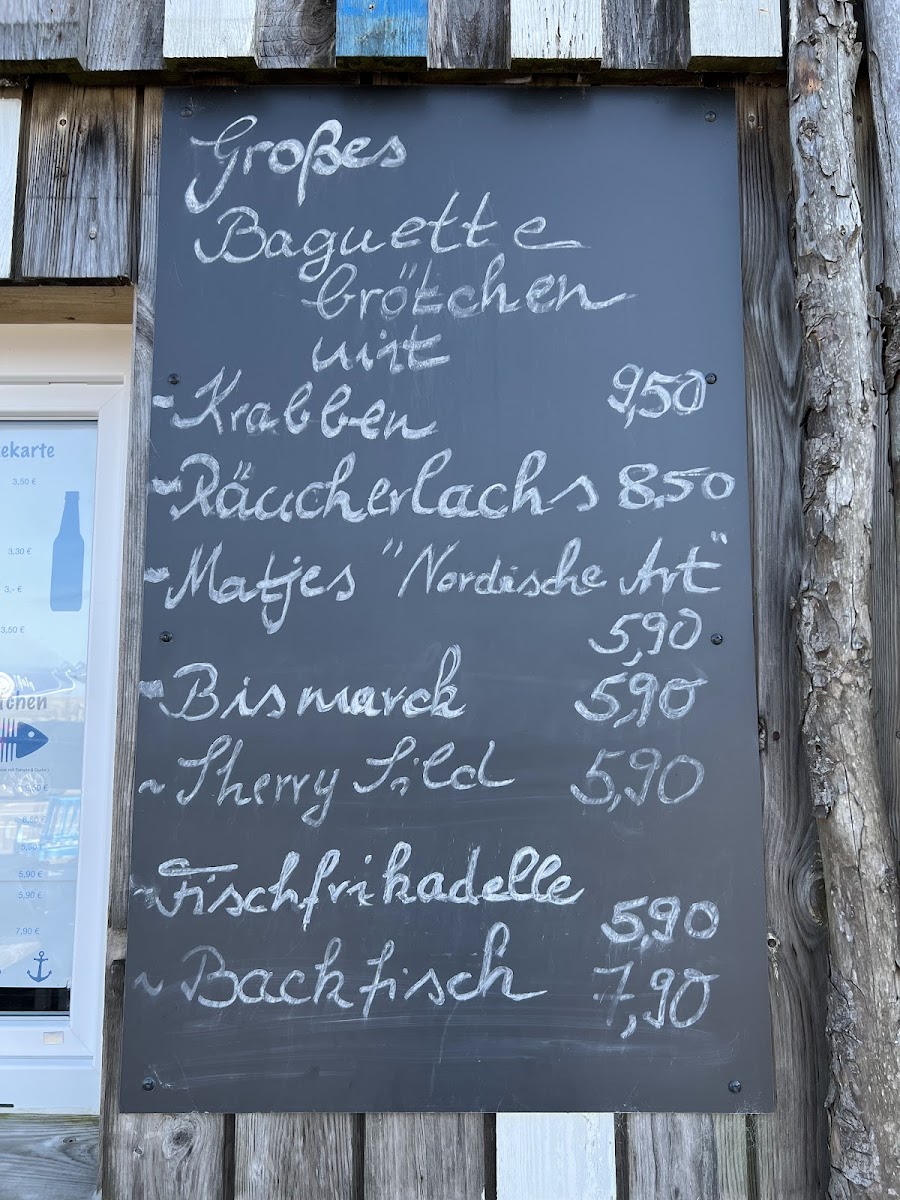 Großes
Baguette
brötchen
mit
- Krabben 9,50
- Räucherlachs 8,50
- Matjes "Nordische Art"
5,90
- Bismarck 5,90
~ Sherry Sild 5,90
~ Fischfrikadelle
5,90
~ Backfisch 7,90
ekarte
3,50 €
3,30 €
3,- €
3,50 €
tchen
5,90 €
5,90 €
7,90 €